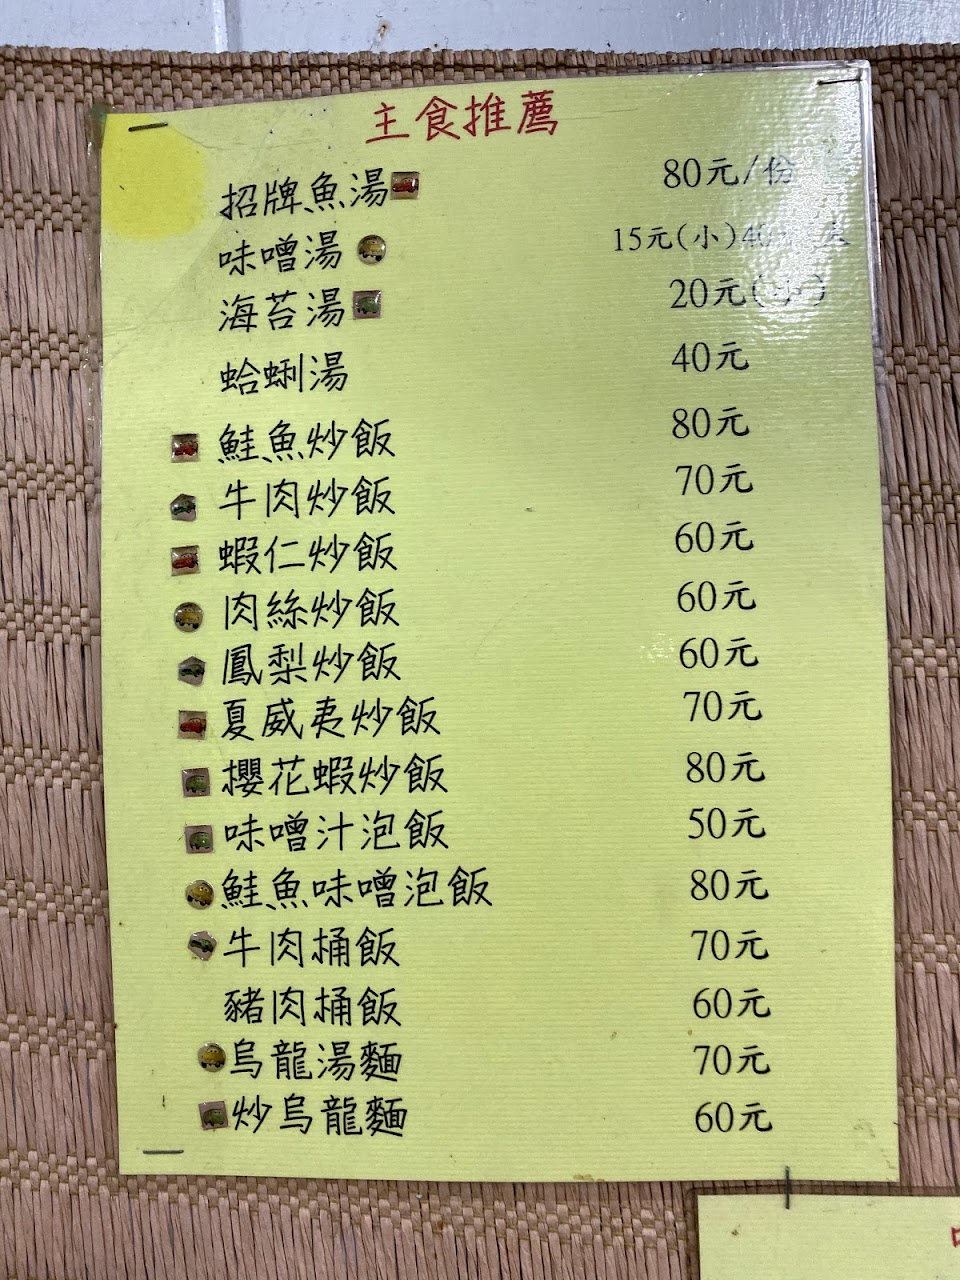 主食推薦
招牌魚湯 80元/份
味噌湯 15元(小)40
海苔湯 20元(小)
蛤蜊湯 40元
鮭魚炒飯 80元
牛肉炒飯 70元
蝦仁炒飯 60元
肉絲炒飯 60元
鳳梨炒飯 60元
夏威夷炒飯 70元
櫻花蝦炒飯 80元
味噌汁泡飯 50元
鮭魚味噌泡飯 80元
牛肉桶飯 70元
豬肉桶飯 60元
烏龍湯麵 70元
炒烏龍麵 60元